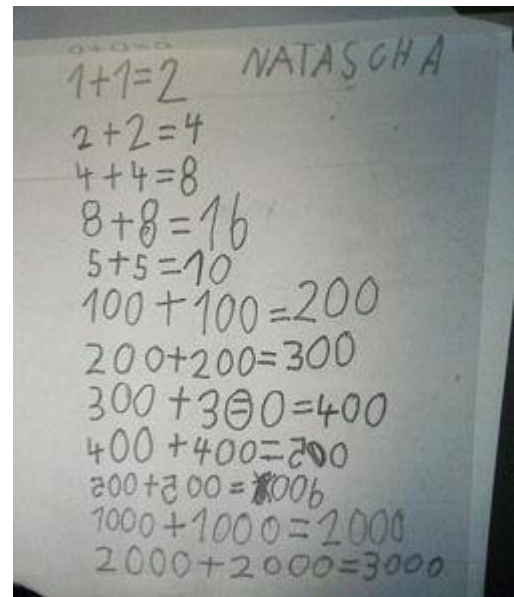 0+0=0
1+1=2 NATASCHA
2+2=4
4+4=8
8+8=16
5+5=10
100+100=200
200+200=300
300+300=400
400+400=500
500+500=006
1000+1000=2000
2000+2000=3000